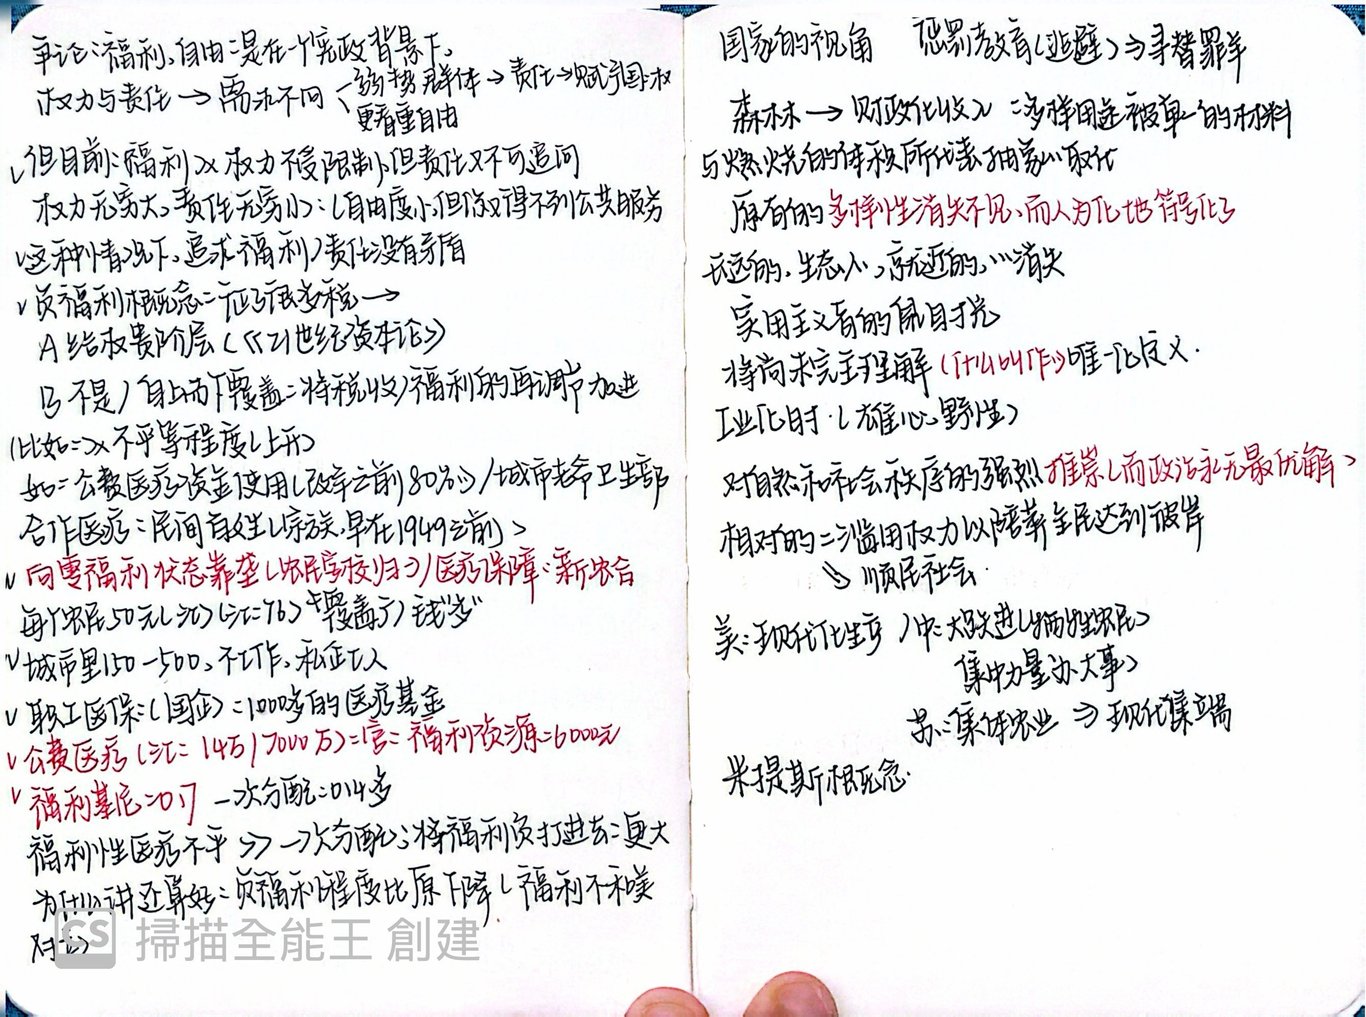 争论：福利、自由：是在一个宪政背景下、
权力与责任 → 需求不同 < 弱势群体 → 责任 → 赋予国权
更看重自由
√但目前：福利 权力不受限制、但责任又不可追问
权力无穷大、责任无穷小：(自由度小、但你又得不到公共服务
√这种情况下、追求福利/责任没有矛盾
√负福利概念：征了很多税 →
A 给权贵阶层(《21世纪资本论》)
B 不是/自上而下覆盖：将税收/福利的再调节加进
(比如： 不平等程度(上升)
如：公费医疗资金使用(改革之前80%)/城市老爷卫生部
合作医疗：民间自生(宗族、早在1949之前)
√向零福利状态靠垄(农民学校归)/医疗保障：新农合
每个农民50元 "覆盖了/钱多"
√城市里150-500、不工作、私企工人
√职工医保：(国企)：1000多的医疗基金
√公费医疗(江：14万/7000万)：官：福利资源=6000元
√福利基尼=0.7 一次分配=0.4多
福利性医疗不平 >> 一次分配；将福利负打进去：更大
为什么讲还算好：负福利程度比原下降(福利不和美
对立)
掃描全能王 創建
国家的视角 惩罚教育(逃避) ⇒ 寻替罪羊
森林 → 财政化收入：多样用途被单一的材料
与燃烧的体积所代表抽象取代
原有的多样性消失不见、而人为化地符号化了
长远的、生态、就近的、…消失
实用主义者的盲目扩充
将尚未完全理解(什么叫作)唯一化定义.
工业化时.(雄心、野性)
对自然和社会秩序的强烈推崇(而政治永无最优解)
相对的：滥用权力以陪葬全民达到彼岸
⇒ 顺民社会.
美：现代化生产/中：大跃进(牺牲农民)
集中力量办大事)
苏：集体农业 ⇒ 现代集端
米提斯概念.